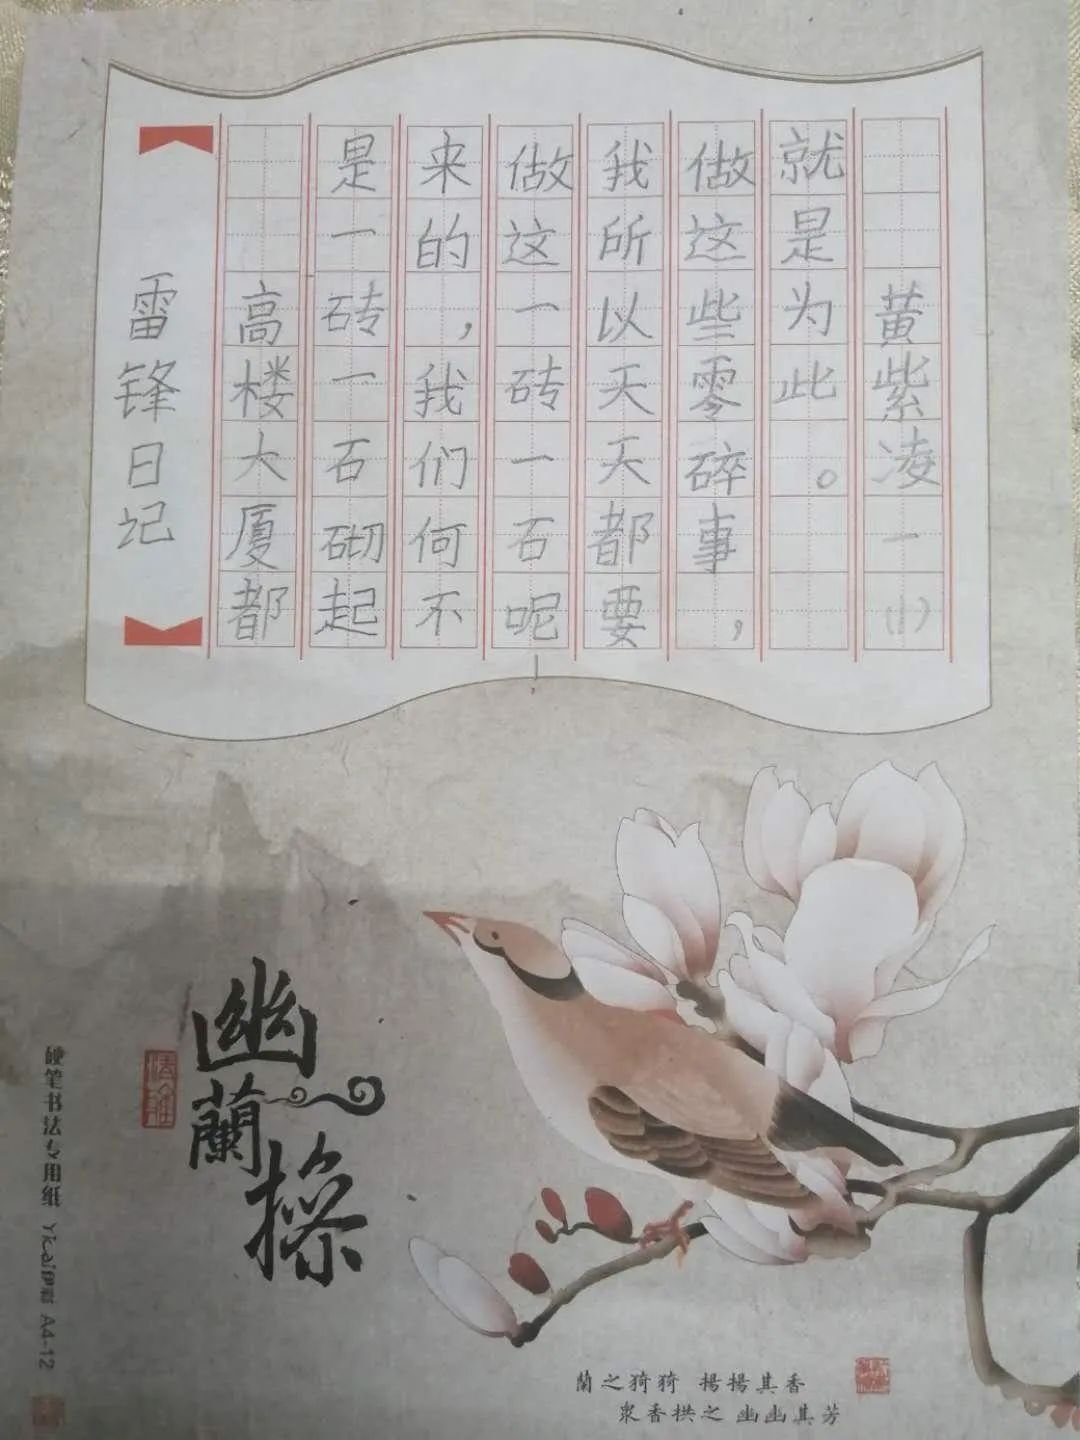 雷锋日记
高楼大厦都
是一砖一石砌起
来的，我们何不
做这一砖一石呢
我所以天天都要
做这些零碎事，
就是为此。
黄紫凌一（1）
幽蘭操
硬笔书法专用纸 Yicai伊彩 A4-12
蘭之猗猗 揚揚其香
眾香拱之 幽幽其芳